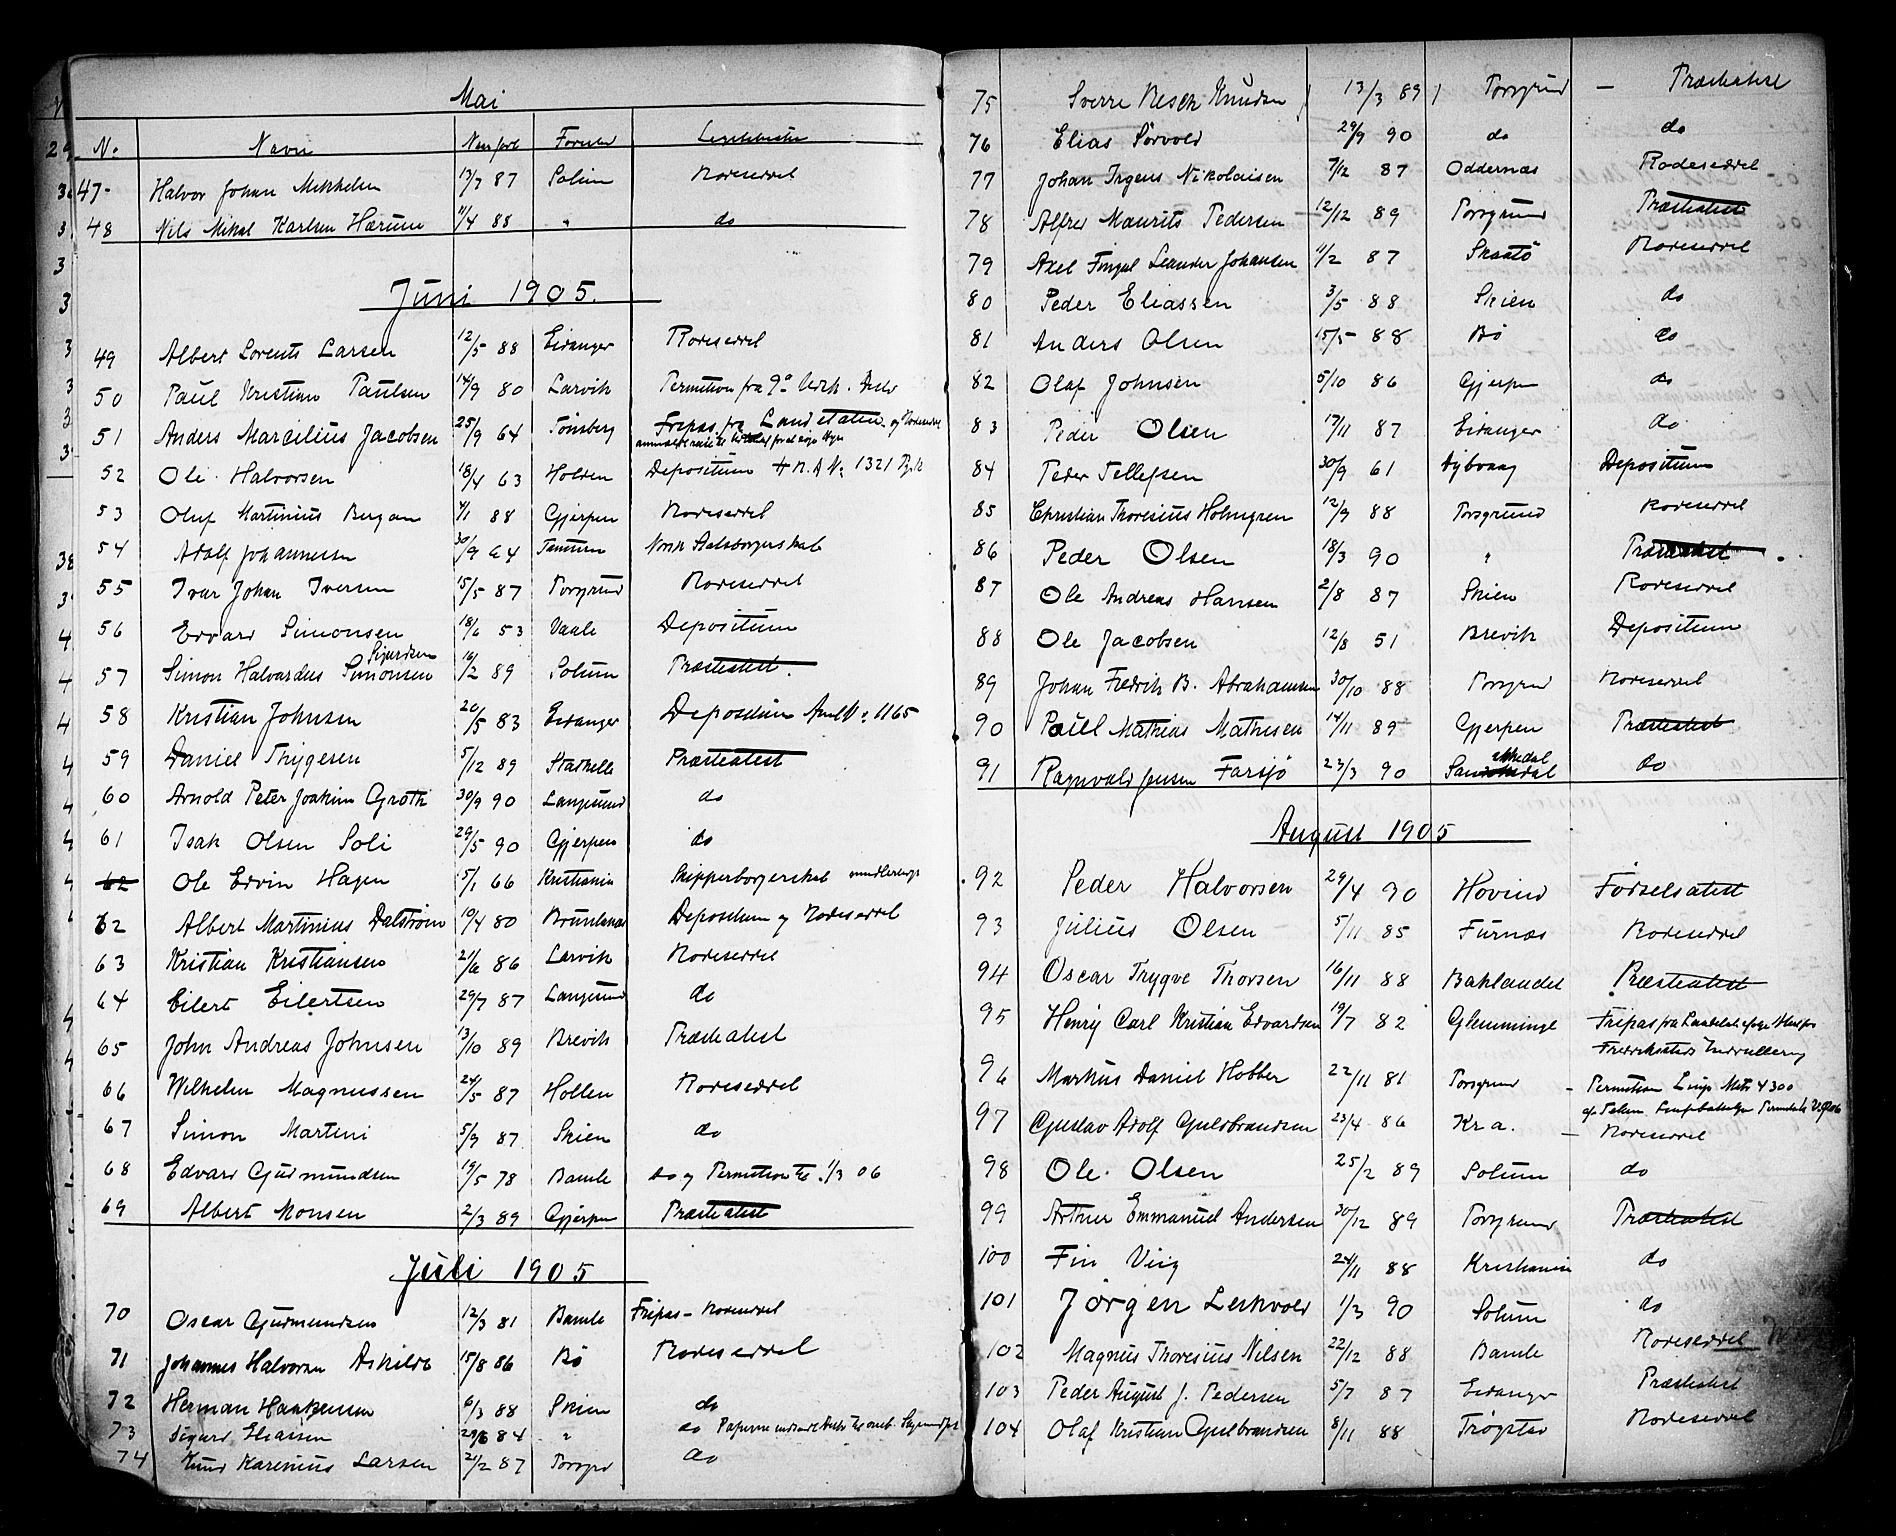 Mai
No Navn Naar født Fødested
47 Halvor Johan Mikkelsen 13/7 87 Solum Rodeseddel
48 Nils Mikal Karlsen Hærum 11/4 88 " do
Juni 1905.
49 Albert Lorents Larsen 12/5 88 Eidanger Rodeseddel
50 Paul Kristian Paulsen 14/9 80 Larvik Permition fra
51 Anders Marcilius Jacobsen 25/9 64 Tønsberg Fripas fra Landetaten og Rodeseddel
52 Ole Halvorsen 18/4 63 Holden Depositum A No 1321
53 Oluf Martinius Bergan 4/1 88 Gjerpen Rodeseddel
54 Adolf Johannesen 30/9 64 Norsk Statsborgerskab
55 Ivar Johan Iversen 15/5 87 Porsgrund Rodeseddel
56 Edvard Simonsen 18/6 53 Vaale Depositum
Sigurdsen
57 Simon Halvardus Simonsen 16/2 89 Solum Præsteatest.
58 Kristian Johnsen 20/5 83 Eidanger Depositum No 1165
59 Daniel Thygesen 5/12 89 Stathelle Præsteatest
60 Arnold Peter Joakim Groth 30/9 90 Langesund do
61 Isak Olsen Soli 29/5 90 Gjerpen do
62 Ole Edvin Hagen 5/1 66 Kristiania Skipperborgerskab
62 Albert Martinius Dalstrøm 10/4 80 Brunlanæs Deposetum og Rodeseddel
63 Kristian Kristiansen 21/6 86 Larvik Rodeseddel
64 Eilert Eilertsen 29/7 87 Langesund do
65 John Andreas Johnsen 13/10 89 Brevik Præsteatest
66 Wilhelm Magnussen 24/5 87 Hollen Rodeseddel
67 Simon Marteni 5/9 87 Skien do
68 Edvard Gudmundsen 19/5 78 Bamle do og Permition til 1/3 06
69 Albert Monsen 2/3 89 Gjerpen Præsteatest
Juli 1905
70 Oscar Gudmundsen 12/3 81 Bamle Fripas - Rodeseddel
71 Johannes Halvorsen Askildt 15/8 86 Bø Rodeseddel
72 Herman Haakensen 6/3 88 Skien do
73 Sigurd Eliasen 29/6 84 " do
74 Knud Karenius Larsen 21/2 87 Porsgrd do
75 Sverre Resch Knudsen 13/3 89 Porsgrund - Præsteatest
76 Elias Sørvold 29/9 90 do do
77 Johan Irgens Nikolaisen 7/12 87 Oddernæs Rodeseddel
78 Alfred Maurits Pedersen 12/12 89 Porsgrund Præsteatest
79 Axel Fingal Leander Johansen 11/2 87 Skaatø Rodeseddel
80 Peder Eliassen 3/5 88 Skien do
81 Anders Olsen 15/5 88 Bø do
82 Olaf Johnsen 5/10 86 Gjerpen do
83 Peder Olsen 17/11 87 Eidanger do
84 Peder Tellefsen 30/9 61 Dybvaag Depositum
85 Christian Thoresius Holmgren 12/9 88 Porsgrund Rodeseddel
86 Peder Olsen 18/3 90 " Præsteatest
87 Ole Andreas Hansen 2/8 87 Skien Rodeseddel
88 Ole Jacobsen 12/8 51 Brevik Depositum
89 Johan Fredrik B. Abrahamsen 30/10 88 Porsgrund Rodeseddel
90 Paul Mathias Mathisen 14/11 89 Gjerpen Præsteatest
91 Ragnvald Jensen Farsjø 23/3 90 do
August 1905
92 Peder Halvorsen 29/4 90 Hovind Fødselsatest
93 Julius Olsen 5/11 85 Furnæs Rodeseddel
94 Oscar Trygve Thorsen 16/11 88 Baklandet Præsteatest
95 Henry Carl Kristian Edvardsen 19/7 82 Glemminge Fripas fra
Fredrikstads Indrullering
96 Markus Daniel Hobber 22/11 81 Porsgrund - Permition
97 Gustav Adolf Guldbrandsen 23/4 86 Kra. - Rodeseddel
98 Ole Olsen 25/2 89 Solum do
99 Arthur Emmanuel Andersen 30/12 89 Porsgrund Præsteatest
100 Fin Viig 24/11 88 Kristiania do
101 Jørgen Leikvold 1/3 90 Solum do
102 Magnus Thoresius Nilsen 22/12 88 Bamle Rodeseddel
103 Peder August J. Pedersen 5/7 87 Eidanger Præsteatest
104 Olaf Kristian Gulbrandsen 8/11 88 Trøgstad Rodeseddel